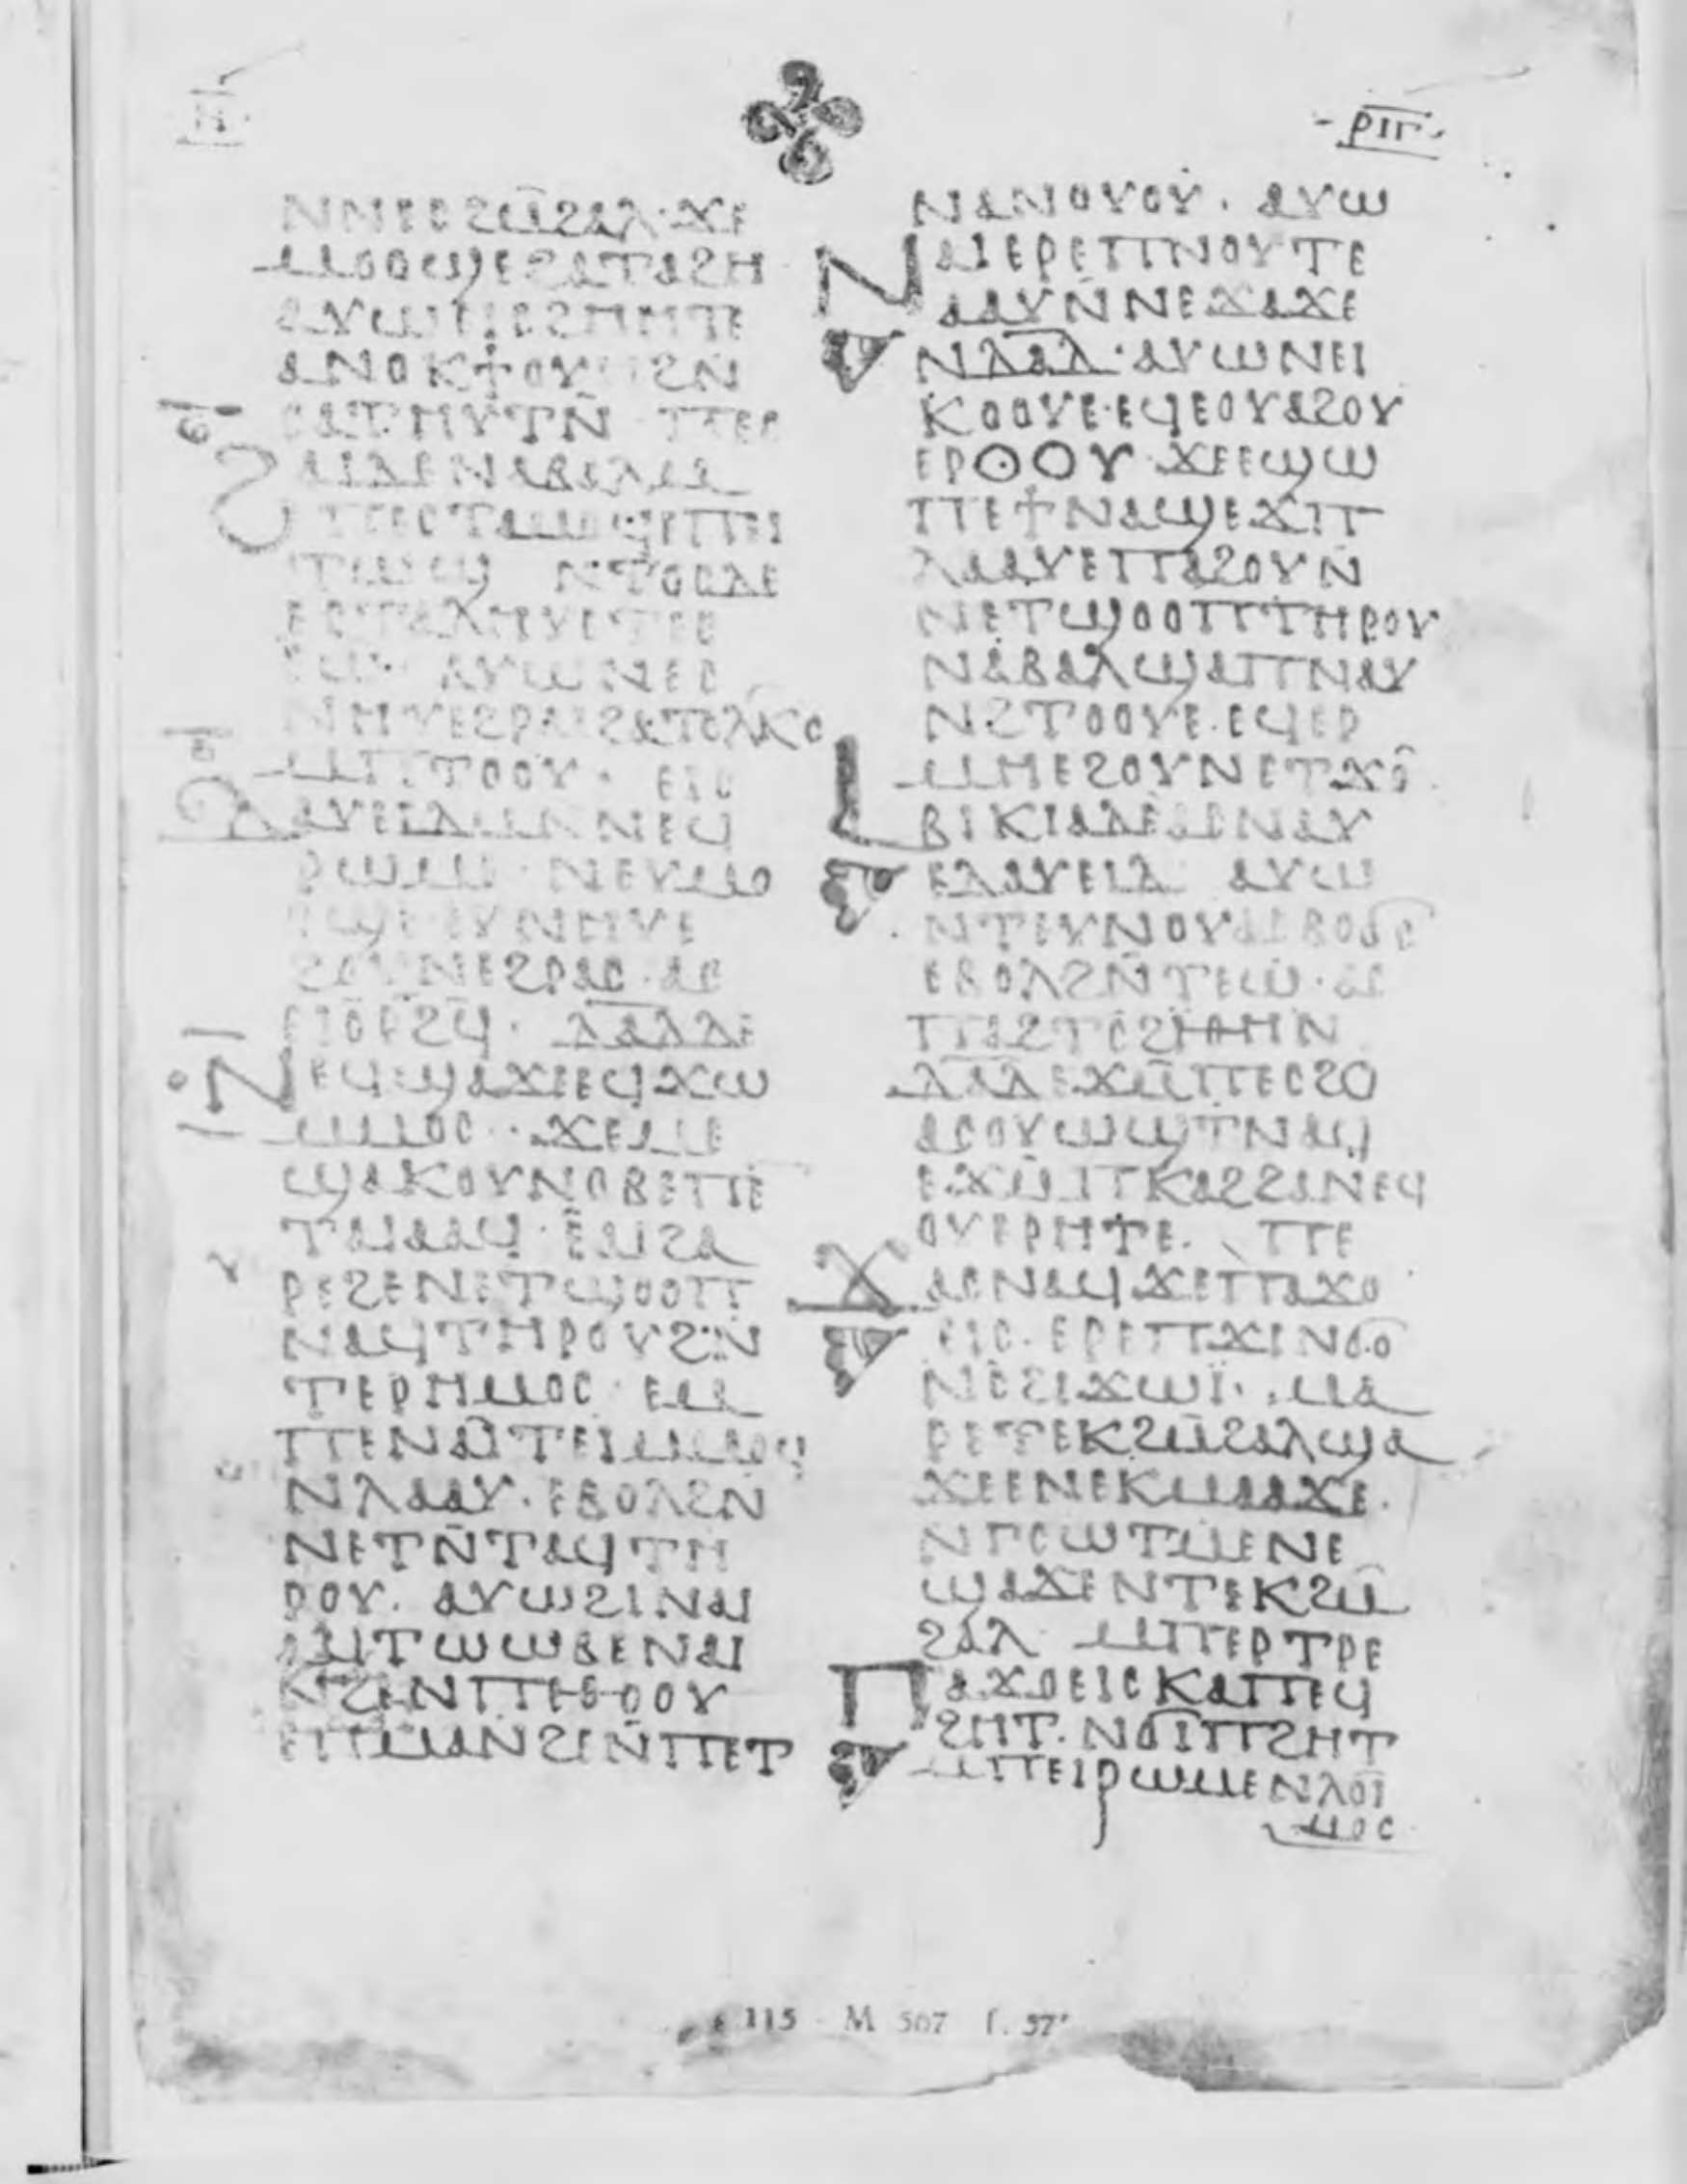 ⲣⲓⲅ
ⲛⲛⲉⲥϩⲙ̄ϩⲁⲗ· ϫⲉ
ⲙⲟⲟϣⲉϩⲁⲧⲁϩⲏ
ⲁⲩⲱ
ⲁⲛⲟⲕϯⲟⲩⲏϩⲛ̄
ⲥⲁⲧⲏⲩⲧⲛ̄ ⲡⲉⲥ
ϩⲁⲓⲇⲉⲛⲁⲃⲁⲗ
ⲙⲡⲉⲥⲧⲁⲙⲟϥⲉⲡⲉⲓ
ϣ ⲛⲧⲟⲥⲇⲉ
ⲉⲥⲧⲁⲗⲏⲩⲉⲡⲉⲥ
ⲉⲓⲱ· ⲁⲩⲱⲛⲉⲥ
ⲛⲏⲩⲉϩⲣⲁⲓϩⲁⲧⲟⲗⲕⲥ
ⲙⲡⲧⲟⲟⲩ· ⲉⲓⲥ
ⲇⲁⲩⲉⲓⲇⲙⲛⲛⲉϥ
ⲣⲱⲙⲉ· ⲛⲉⲩⲙⲟ
ⲟϣⲉ ⲉⲩⲛⲏⲩⲉ
ϩⲟⲩⲛⲉϩⲣⲁⲥ· ⲁⲥ
ⲇⲁⲇⲇⲉ
ⲛⲉϥϣⲁϫⲉⲉϥϫⲱ
ⲙⲙⲟⲥ· ϫⲉⲙⲉ
ϣⲁⲕⲟⲩⲛⲟⲃⲉⲡⲉ
ⲛ̄ⲧⲁⲓⲁⲁϥ· ⲉⲁⲓϩⲁ
ⲣⲉϩⲉⲛⲉⲧϣⲟⲟⲡ
ⲛⲁϥⲧⲏⲣⲟⲩϩⲛ
ⲧⲉⲣⲏⲙⲟⲥ· ⲉⲙ
ⲡⲉⲛϫⲓⲧⲉⲓⲙⲙⲟϥ
ⲛⲗⲁⲁⲩ· ⲉⲃⲟⲗϩⲛ
ⲛⲉⲧⲛ̄ⲧⲁϥⲧⲏ
ⲣⲟⲩ· ⲁⲩⲱϩⲓⲛⲁⲓ
ⲁϥⲧⲱⲱⲃⲉⲛⲁⲓ
ⲛϩⲉⲛⲡⲉⲑⲟⲟⲩ
ⲉⲡⲙⲁⲛϩⲉⲛ̄ⲡⲉⲧ
ⲛⲁⲛⲟⲩⲟⲩ· ⲁⲩⲱ
ⲛⲁⲓⲉⲣⲉⲡⲛⲟⲩⲧⲉ
ⲁⲁⲩⲛ̄ⲛⲉϫⲁϫⲉ
ⲛⲇⲁⲇ· ⲁⲩⲱⲛⲉⲓ
ⲕⲟⲟⲩⲉ· ⲉϥⲉⲟⲩⲁϩⲟⲩ
ⲉⲣⲟⲟⲩ ϫⲉⲉϣⲱ
ⲡⲉϯⲛⲁϣⲉϫⲡ
ⲗⲁⲁⲩⲉⲡⲁϩⲟⲩⲛ̄
ⲛⲉⲧϣⲟⲟⲡⲧⲏⲣⲟⲩ
ⲛⲁⲃⲁⲗϣⲁⲡⲛⲁⲩ
ⲛϩⲧⲟⲟⲩⲉ· ⲉϥⲉⲣ
ⲙⲏⲉϩⲟⲩⲛⲉⲧϫⲟ
ⲁⲃⲓⲕⲓⲁⲇⲉⲁⲥⲛⲁⲩ
ⲉⲇⲁⲩⲉⲓⲇ ⲁⲩⲱ
ⲛⲧⲉⲩⲛⲟⲩⲁⲥⲃⲟϭⲥ
ⲉⲃⲟⲗϩⲛ̄ⲧⲉⲱ· ⲁⲥ
ⲡⲁϩⲧⲥϩⲑⲏⲛ
ⲇⲁⲇⲉϫⲙ̄ⲡⲉⲥϩⲟ
ⲁⲥⲟⲩⲱϣⲧⲛⲁϥ
ⲉϫⲙ̄ⲡⲕⲁϩϩⲁⲛⲉϥ
ⲟⲩⲉⲣⲏⲧⲉ· ⲡⲉ
ϫⲁⲥⲛⲁϥϫⲉⲡⲁϫⲟ
ⲉⲓⲥ· ⲉⲣⲉⲡϫⲓⲛϭⲟ
ⲛⲥϩⲓϫⲱⲓ̈· ⲙⲁ
ⲣⲉⲧⲉⲕϩⲙ̄ϩⲁⲗϣⲁ
ϫⲉⲉⲛⲉⲕⲙⲁⲁϫⲉ·
ⲛⲅⲥⲱⲧⲙⲉⲛⲉ
ϣⲁϫⲉⲛⲧⲉⲕϩⲙ̄
ϩⲁⲗ· ⲙⲡⲉⲣⲧⲣⲉ
ⲡⲁϫⲟⲉⲓⲥⲕⲁⲡⲉϥ
ϩⲏⲧ· ⲛϭⲓⲡϩⲏⲧ
ⲙⲡⲉⲓⲣⲱⲙⲉⲛⲗⲟⲓ
ⲙⲟⲥ
115 - M 567 f. 57ʳ